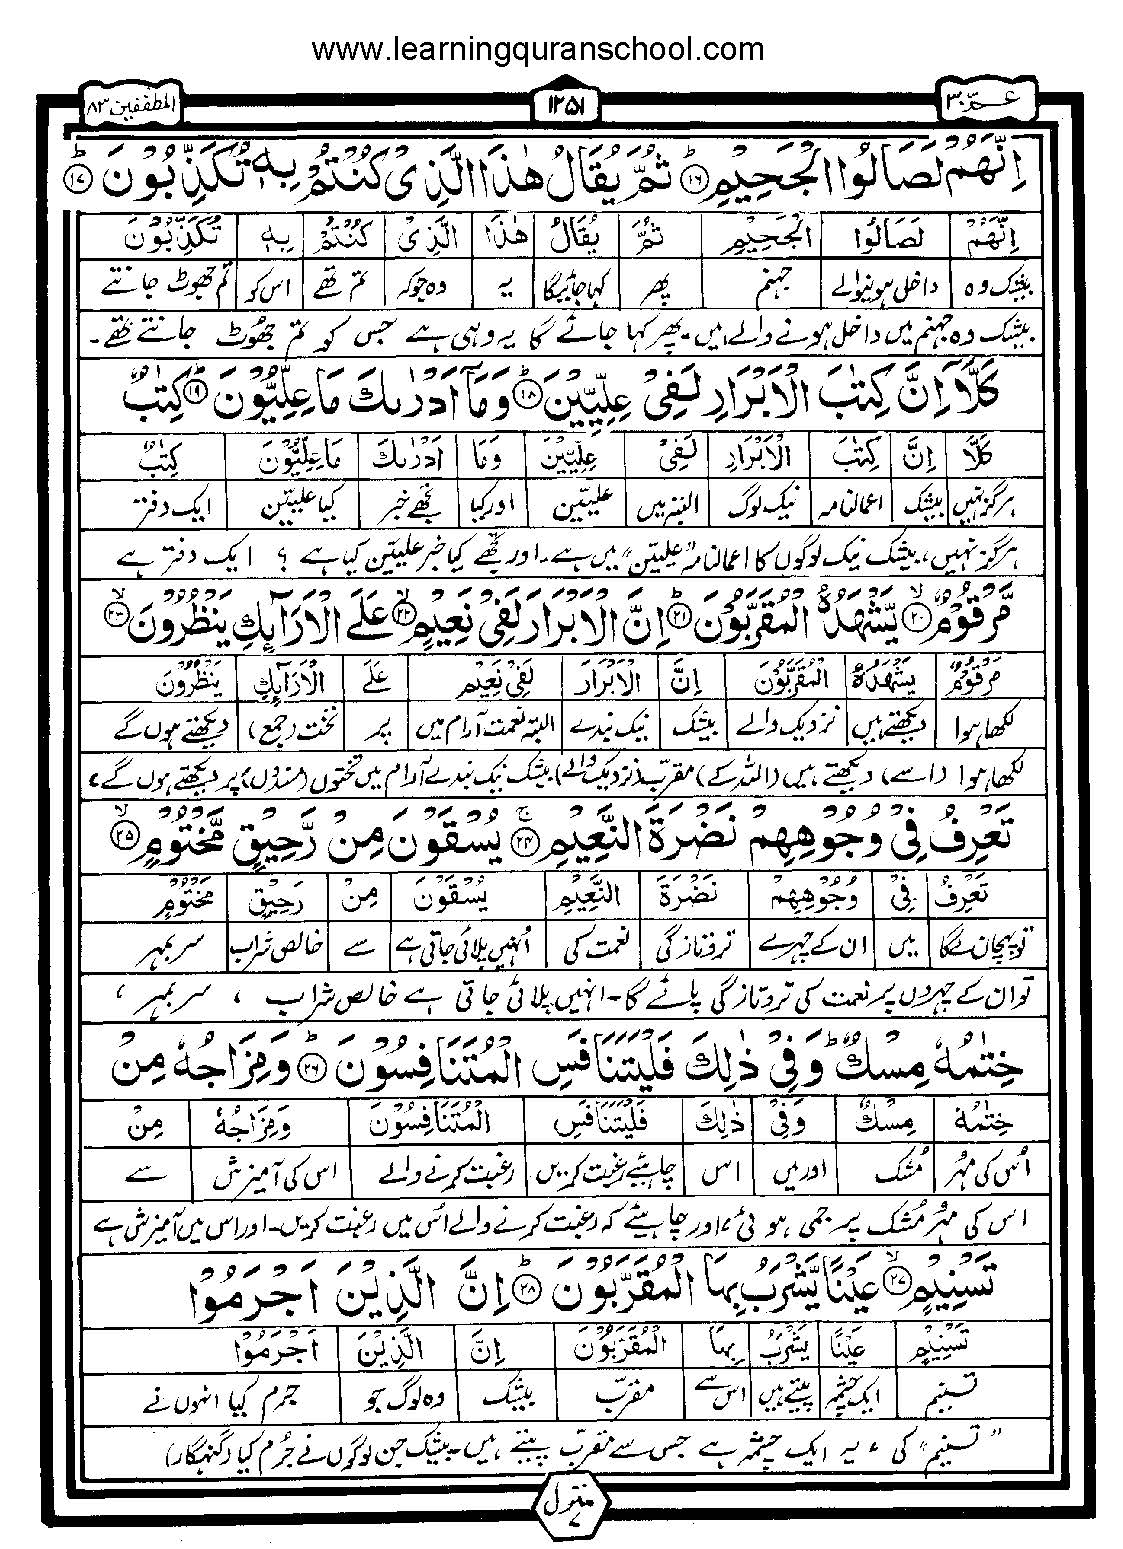 www.learningquranschool.com
عـمّ ۳۰
۱۲۵۱
المطففین ۸۳
اِنَّهُمْ لَصَالُوا الْجَحِيْمِ ۱۶ ثُمَّ يُقَالُ هٰذَا الَّذِىْ كُنْتُمْ بِهٖ تُكَذِّبُوْنَ ۱۷
اِنَّهُمْ لَصَالُوا الْجَحِيْمِ ثُمَّ يُقَالُ هٰذَا الَّذِىْ كُنْتُمْ بِهٖ تُكَذِّبُوْنَ
بیشک وہ داخل ہونیوالے جہنم پھر کہا جائیگا یہ وہ جوکہ تم تھے اس کو تم جھوٹ جانتے
بیشک وہ جہنم میں داخل ہونے والے ہیں۔ پھر کہا جائے گا یہ وہی ہے جس کو تم جھوٹ جانتے تھے۔
كَلَّآ اِنَّ كِتٰبَ الْاَبْرَارِ لَفِىْ عِلِّيِّيْنَ ۱۸ وَمَآ اَدْرٰىكَ مَا عِلِّيُّوْنَ ۱۹ كِتٰبٌ
كَلَّآ اِنَّ كِتٰبَ الْاَبْرَارِ لَفِىْ عِلِّيِّيْنَ وَمَآ اَدْرٰىكَ مَا عِلِّيُّوْنَ كِتٰبٌ
ہرگز نہیں بیشک اعمالنامہ نیک لوگ البتہ میں علیین اور کیا تجھے خبر کیا علیین ایک دفتر
ہرگز نہیں، بیشک نیک لوگوں کا اعمالنامہ "علیین" میں ہے۔ اور تجھے کیا خبر علیین کیا ہے ؟ ایک دفتر ہے
مَّرْقُوْمٌ ۲۰ يَّشْهَدُهُ الْمُقَرَّبُوْنَ ۲۱ اِنَّ الْاَبْرَارَ لَفِىْ نَعِيْمٍ ۲۲ عَلَى الْاَرَآئِكِ يَنْظُرُوْنَ ۲۰
مَرْقُوْمٌ يَشْهَدُهُ الْمُقَرَّبُوْنَ اِنَّ الْاَبْرَارَ لَفِىْ نَعِيْمٍ عَلَى الْاَرَآئِكِ يَنْظُرُوْنَ
لکھا ہوا دیکھتے ہیں نزدیک والے بیشک نیک بندے البتہ نعمت آرام میں پر تخت (جمع) دیکھتے ہوں گے
لکھا ہوا (اسے) دیکھتے ہیں (اللہ کے) مقرب (نزدیک والے) بیشک نیک بندے آرام میں تختوں (مسندوں) پر دیکھتے ہوں گے،
تَعْرِفُ فِىْ وُجُوْهِهِمْ نَضْرَةَ النَّعِيْمِ ۲۴ يُسْقَوْنَ مِنْ رَّحِيْقٍ مَّخْتُوْمٍ ۲۵
تَعْرِفُ فِىْ وُجُوْهِهِمْ نَضْرَةَ النَّعِيْمِ يُسْقَوْنَ مِنْ رَحِيْقٍ مَخْتُوْمٍ
تو پہچان لے گا میں ان کے چہرے تروتازگی نعمت کی اُنہیں پلائی جاتی ہے سے خالص شراب سر بمہر
تو ان کے چہروں پر نعمت کی تروتازگی پائے گا۔ انہیں پلائی جاتی ہے خالص شراب ، سر بمہر ،
خِتٰمُهٗ مِسْكٌ وَفِىْ ذٰلِكَ فَلْيَتَنَافَسِ الْمُتَنَافِسُوْنَ ۲۶ وَمِزَاجُهٗ مِنْ
خِتٰمُهٗ مِسْكٌ وَفِىْ ذٰلِكَ فَلْيَتَنَافَسِ الْمُتَنَافِسُوْنَ وَمِزَاجُهٗ مِنْ
اُس کی مہر مُشک اور میں اس چاہیئے رغبت کریں رغبت کرنے والے اس کی آمیزش سے
اس کی مہر مُشک پر جمی ہوئی، اور چاہیئے کہ رغبت کرنے والے اُس میں رغبت کریں۔ اور اس میں آمیزش ہے
تَسْنِيْمٍ ۲۷ عَيْنًا يَّشْرَبُ بِهَا الْمُقَرَّبُوْنَ ۲۸ اِنَّ الَّذِيْنَ اَجْرَمُوْا
تَسْنِيْمٍ عَيْنًا يَشْرَبُ بِهَا الْمُقَرَّبُوْنَ اِنَّ الَّذِيْنَ اَجْرَمُوْا
تسنیم ایک چشمہ پیتے ہیں اس سے مقرّب بیشک وہ لوگ جو جرم کیا انہوں نے
"تسنیم" کی ، یہ ایک چشمہ ہے جس سے مقرّب پیتے ہیں۔ بیشک جن لوگوں نے جُرم کیا (گنہگار)
منزل ۷